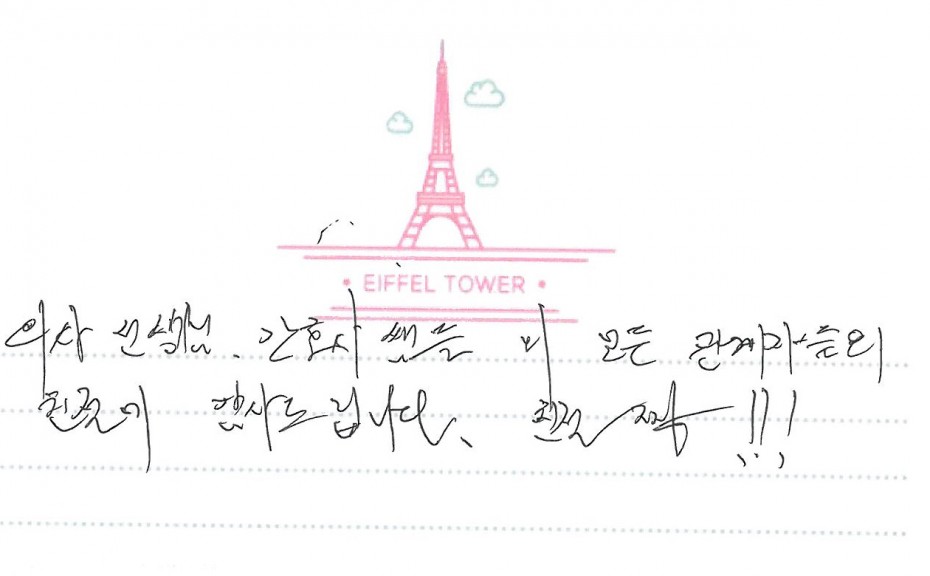 EIFFEL TOWER
의사 선생님. 간호사 쌤들 및 모든 관계자들의
친절에 감사드립니다. 친절 짝!!!